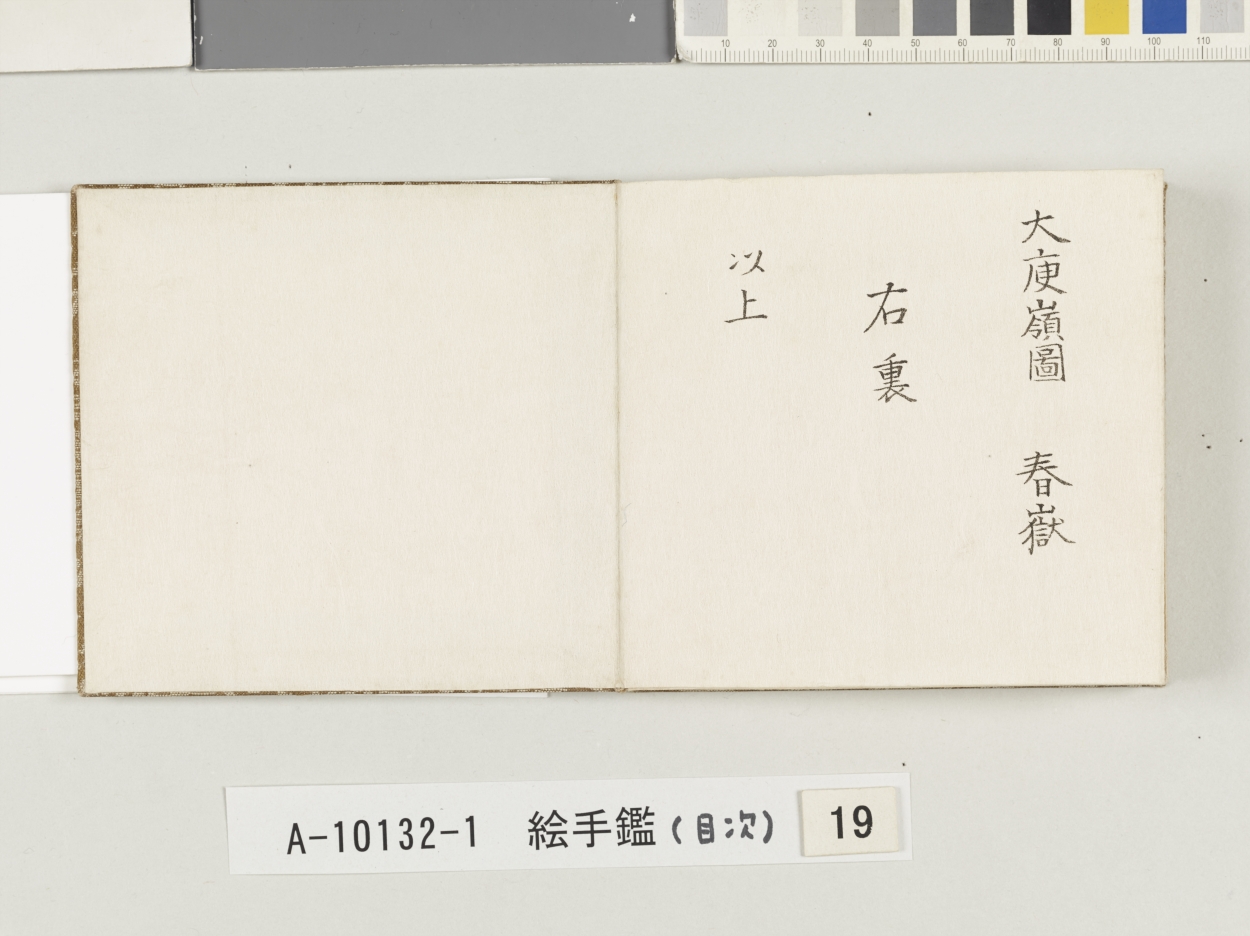 10 20 30 40 50 60 70 80 90 100 110
大庾嶺圖　春嶽
右裏
以上
A-10132-1　絵手鑑(目次)　19